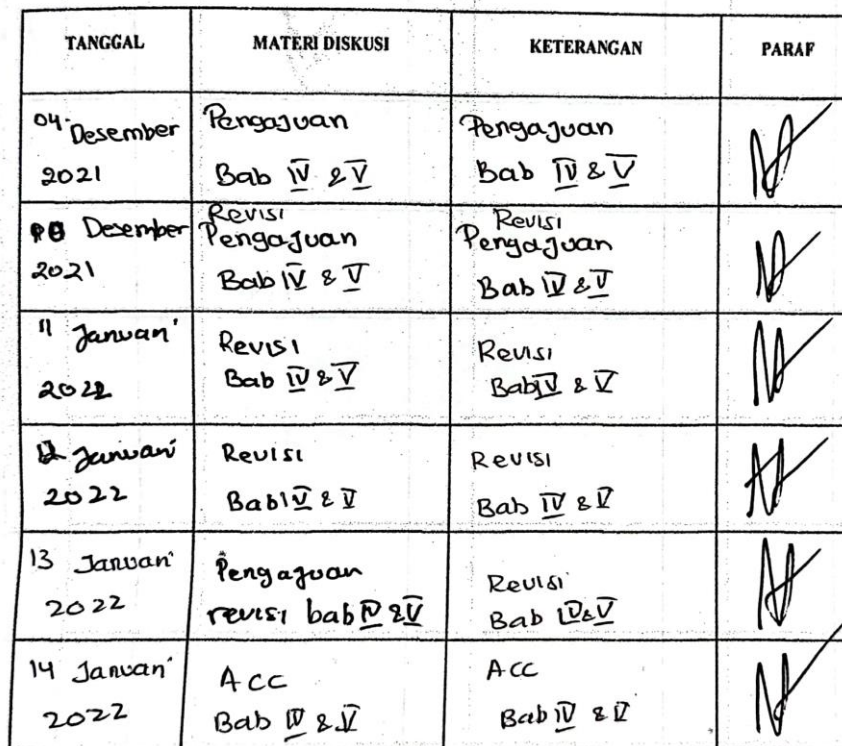 TANGGAL MATERI DISKUSI KETERANGAN PARAF
04 Desember 2021
Pengajuan
Bab IV & V
Pengajuan
Bab IV & V
Desember
2021
Revisi
Pengajuan
Bab IV & V
Revisi
Pengajuan
Bab IV & V
11 Januari
2022
Revisi
Bab IV & V
Revisi
Bab IV & V
12 Januari
2022
Revisi
Bab IV & V
Revisi
Bab IV & V
13 Januari
2022
Pengajuan
revisi bab IV & V
Revisi
Bab IV & V
14 Januari
2022
ACC
Bab IV & V
ACC
Bab IV & V